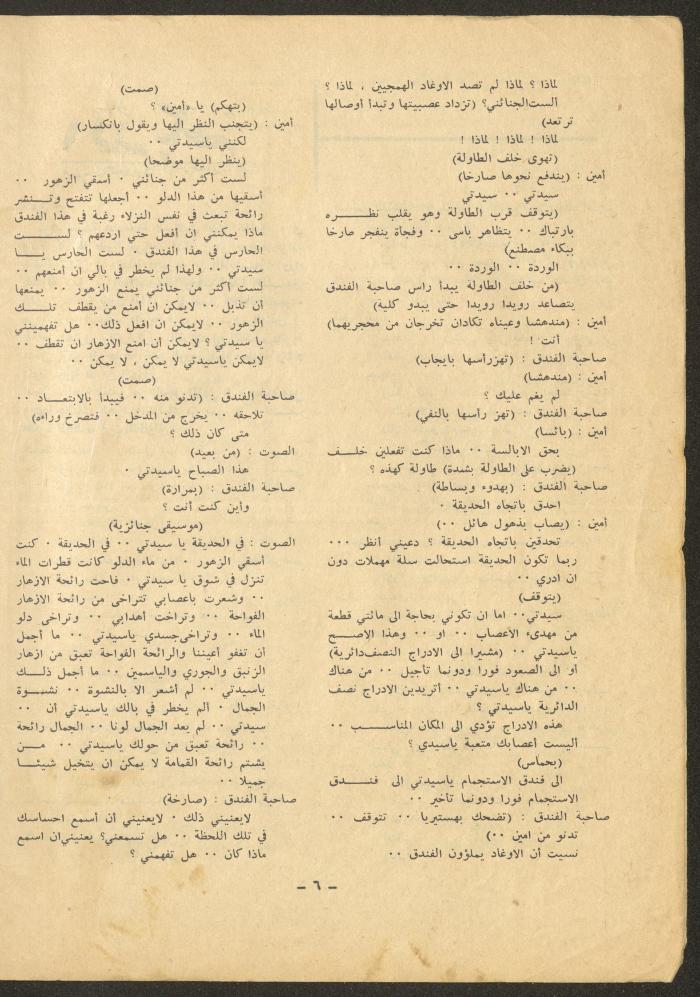 لماذا ؟ لماذا لم تصد الاوغاد الهمجيين ، لماذا ؟
ألست الجنائني؟ (تزداد عصبيتها وتبدأ أوصالها
ترتعد)
لماذا ! لماذا ! لماذا !
(تهوى خلف الطاولة)
أمين : (يندفع نحوها صارخا)
سيدتي ٠٠ سيدتي
(يتوقف قرب الطاولة وهو يقلب نظـــــره
بارتباك ٠٠ يتظاهر باسى ٠٠ وفجأة ينفجر صارخا
ببكاء مصطنع)
الوردة ٠٠ الوردة ٠٠
(من خلف الطاولة يبدأ راس صاحبة الفندق
يتصاعد رويدا رويدا حتى يبدو كلية)
أمين : (مندهشا وعيناه تكادان تخرجان من محجريهما)
أنت !
صاحبة الفندق : (تهز رأسها بايجاب)
أمين : (مندهشا)
لم يغم عليك ؟
صاحبة الفندق : (تهز رأسها بالنفي)
أمين : (يائسا)
بحق الابالسة ٠٠ ماذا كنت تفعلين خلـــف
(يضرب على الطاولة بشدة) طاولة كهذه ؟
صاحبة الفندق : (بهدوء وبساطة)
احدق باتجاه الحديقة ٠
أمين : (يصاب بذهول هائل ٠٠)
تحدقين باتجاه الحديقة ؟ دعيني أنظر ٠٠٠
ربما تكون الحديقة استحالت سلة مهملات دون
ان ادري ٠٠
(يتوقف)
سيدتي٠٠ اما ان تكوني بحاجة الى مائتي قطعة
من مهدىء الأعصاب ٠٠ او ٠٠ وهذا الاصـــح
ياسيدتي ٠٠ (مشيرا الى الادراج النصف دائرية)
أو الى الصعود فورا ودونما تأجيل ٠٠ من هناك
٠٠ من هناك ياسيدتي ٠٠ أتريدين الادراج نصف
الدائرية ياسيدتي ؟
هذه الادراج تؤدي الى المكان المناســـب ٠٠
أليست أعصابك متعبة ياسيدي ؟
(بحماس)
الى فندق الاستجمام ياسيدتي الى فنـــدق
الاستجمام فورا ودونما تأخير ٠٠
صاحبة الفندق : (تضحك بهستيريا ٠٠ تتوقف ٠٠
تدنو من امين ٠٠)
نسيت أن الاوغاد يملؤون الفندق ٠٠
(صمت)
(بتهكم) يا «أمين» ؟
أمين : (يتجنب النظر اليها ويقول بانكسار)
لكنني ياسيدتي ٠٠
(ينظر اليها موضحا)
لست أكثر من جنائني ٠ أسقي الزهور ٠٠
أسقيها من هذا الدلو ٠٠ أجعلها تتفتح وتـــنشر
رائحة تبعث في نفس النزلاء رغبة في هذا الفندق
ماذا يمكنني ان أفعل حتى اردعهم ؟ لســـــت
الحارس في هذا الفندق ٠ لست الحارس يـــا
سيدتي ٠٠ ولهذا لم يخطر في بالي ان امنعهم ٠٠
لست أكثر من جنائني يمنع الزهور ٠٠ يمنعها
أن تذبل ٠٠ لايمكن ان أمنع من يقطف تلـــك
الزهور ٠٠ لايمكن ان افعل ذلك٠٠ هل تفهمينني
يا سيدتي ؟ لايمكن أن امنع الازهار ان تقطف ٠٠
لايمكن ياسيدتي لا يمكن ، لا يمكن ٠٠
(صمت)
صاحبة الفندق : (تدنو منه ٠٠ فيبدأ بالابتعـــاد ٠٠
تلاحقه ٠٠ يخرج من المدخل ٠٠ فتصرخ وراءه)
متى كان ذلك ؟
الصوت : (من بعيد)
هذا الصباح ياسيدتي ٠
صاحبة الفندق : (بمرارة)
وأين كنت أنت ؟
(موسيقى جنائزية)
الصوت : في الحديقة يا سيدتي ٠٠ في الحديقة ٠ كنت
أسقي الزهور ٠ من ماء الدلو كانت قطرات الماء
تنزل في شوق يا سيدتي ٠ فاحت رائحة الازهار
٠٠ وشعرت باعصابي تتراخى من رائحة الازهار
الفواحة ٠٠ وتراخت أهدابي ٠٠ وتراخى دلو
الماء ٠٠ وتراخى جسدي ياسيدتي ٠٠ ما أجمل
ان تغفو أعيننا والرائحة الفواحة تعبق من ازهار
الزنبق والجوري والياسمين ٠٠ ما أجمل ذلـــك
ياسيدتي ٠٠ لم أشعر الا بالنشوة ٠٠ نشـــوة
الجمال ٠ ألم يخطر في بالك ياسيدتي أن ٠٠
سيدتي ٠٠ لم يعد الجمال لونا ٠٠ الجمال رائحة
٠٠ رائحة تعبق من حولك ياسيدتي ٠٠ مـــن
يشتم رائحة القمامة لا يمكن ان يتخيل شيئـــا
جميلا ٠٠
صاحبة الفندق : (صارخة)
لايعنيني ذلك ٠ لايعنيني أن أسمع احساسك
في تلك اللحظة ٠٠ هل تسمعني؟ يعنيني ان اسمع
ماذا كان ٠٠ هل تفهمني ؟
– ٦ –